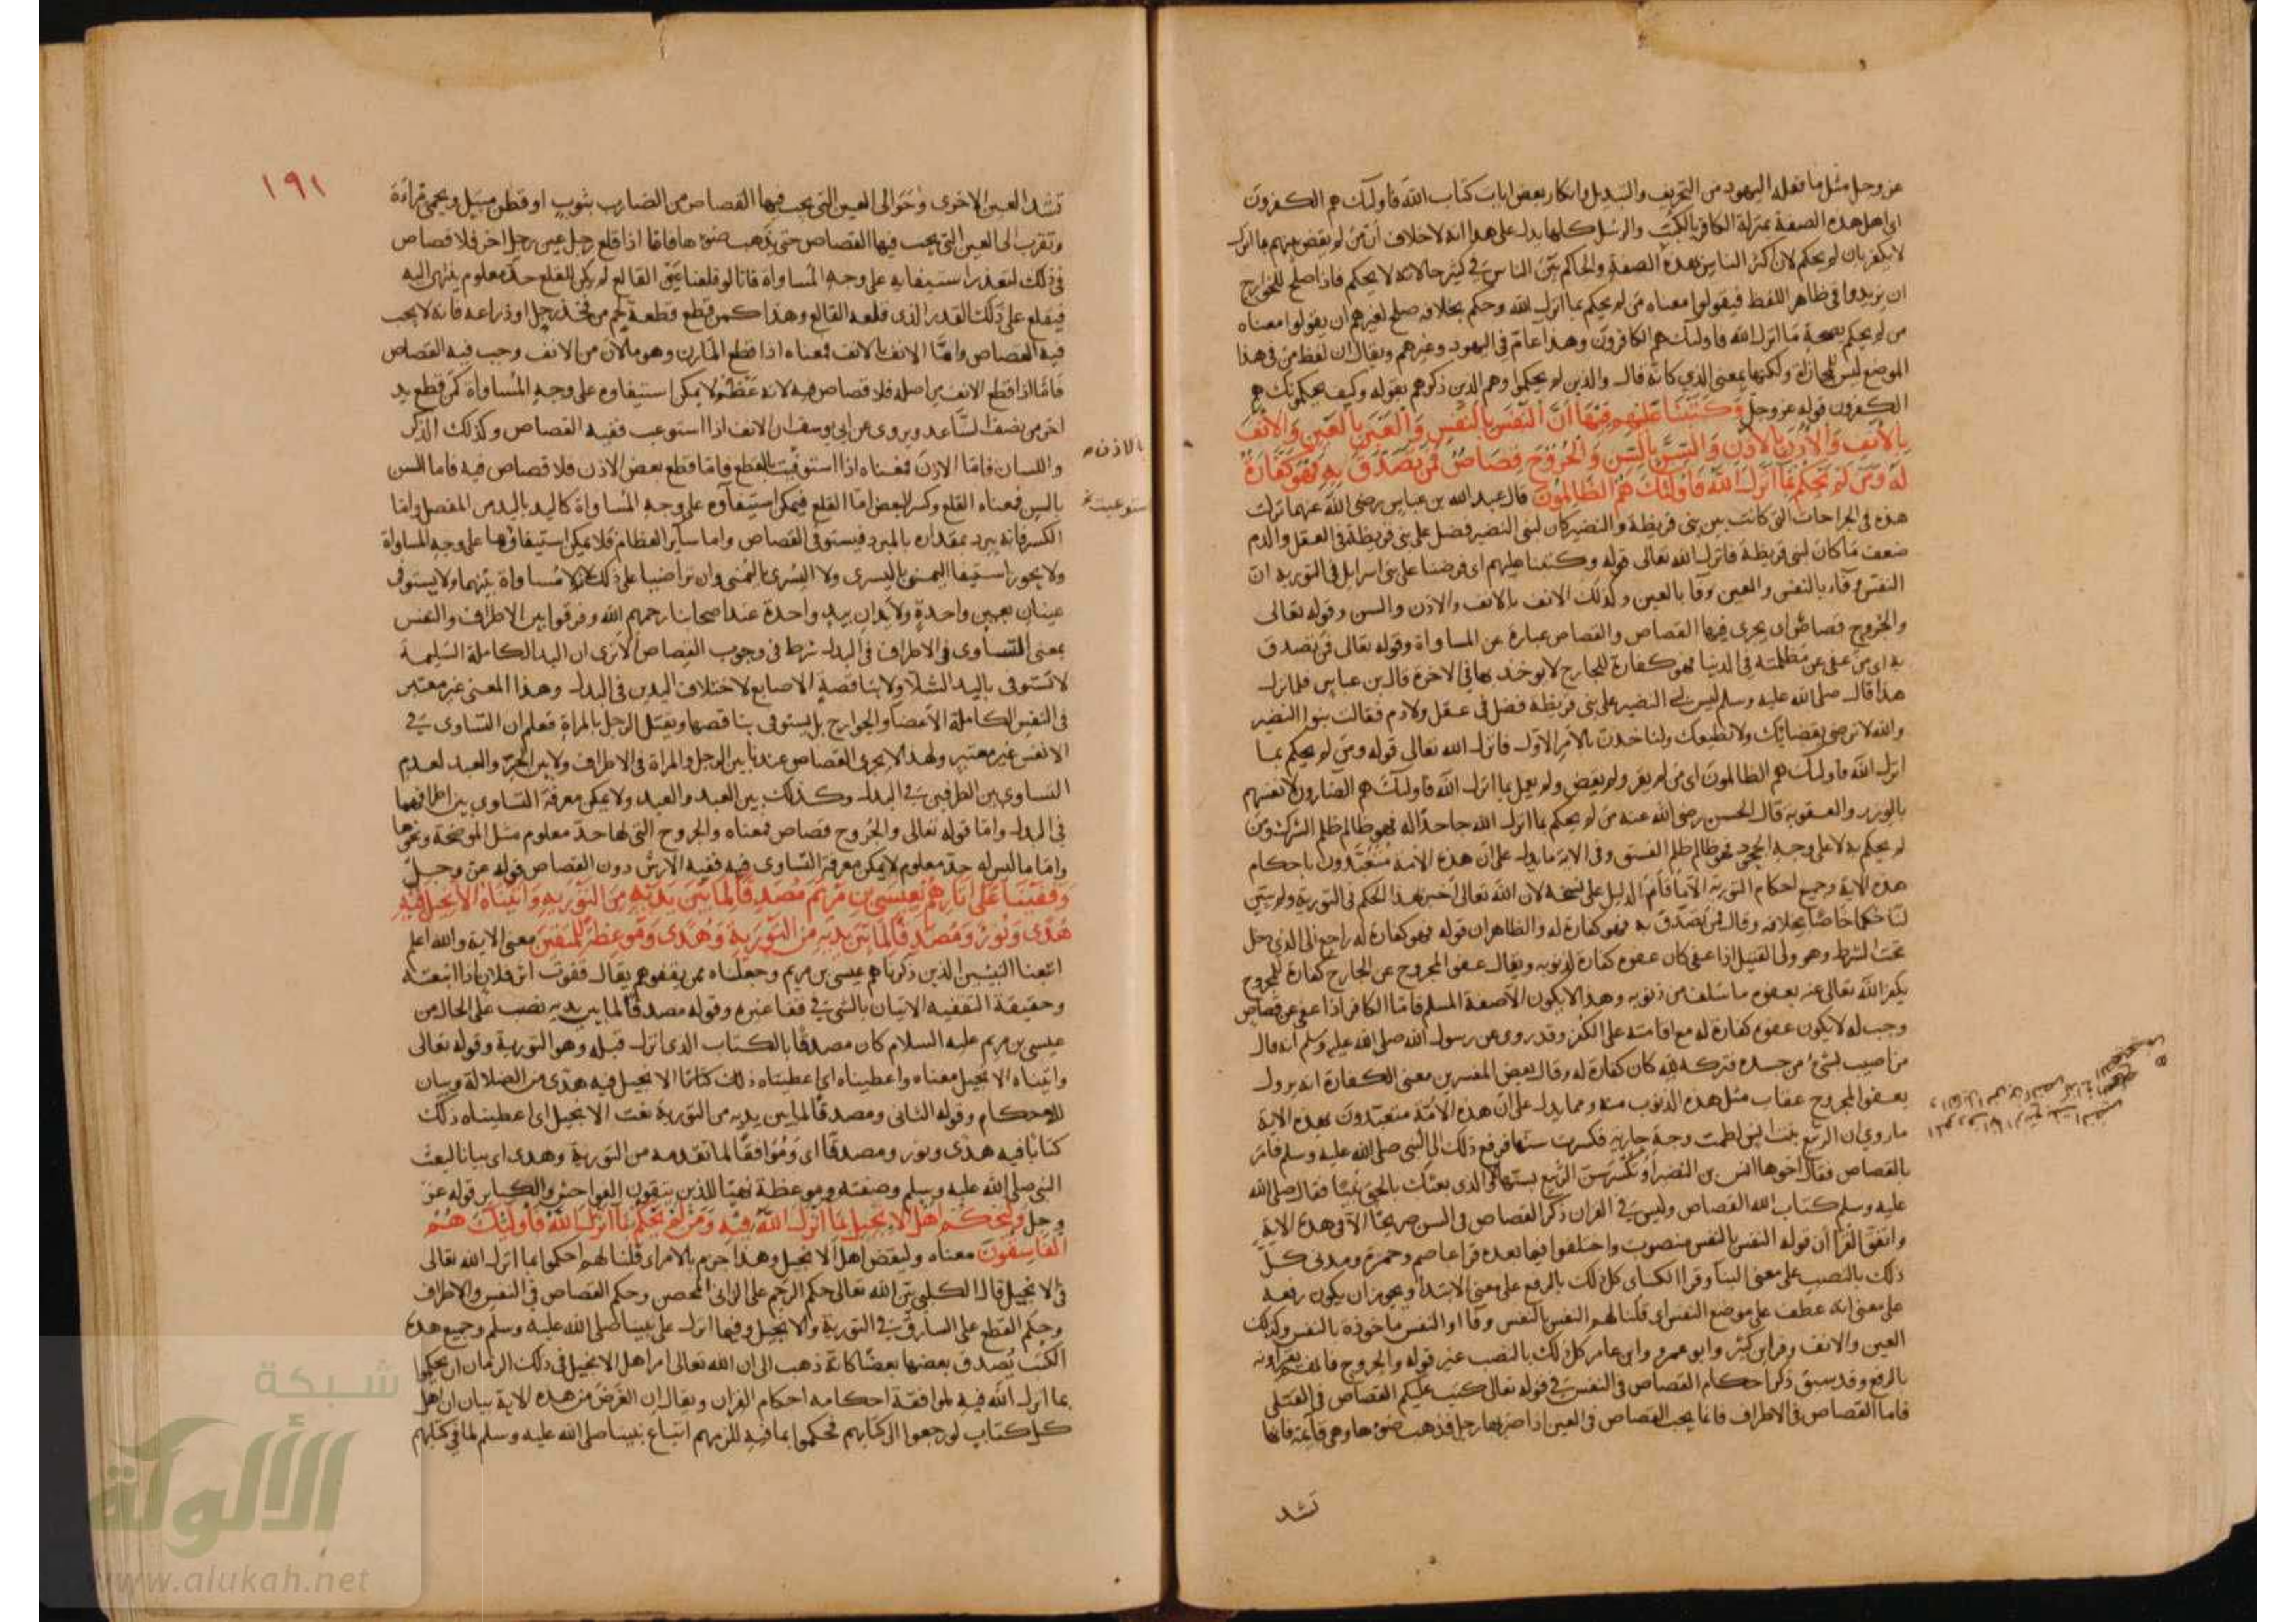 عز وجل مثل ما فعله اليهود من التحريف والتبديل وانكار بعض ايات كتاب الله فاولئك هم الكفرون
اى اهل هذه الصفة بمنزلة الكافر بالكتب والرسل كلها يدل على هذا انه لاخلاف ان من لم يقض بينهم بما انزل
لا يكفر بان لم يحكم لان اكثر الناس بهذه الصفة والحاكم بين الناس فى كثير حالاته لا يحكم فاذا صلح للخوارج
ان يزيدوا فى ظاهر اللفظ فيقولوا معناه من لم يحكم بما انزل الله وحكم بخلافه صلح لغيرهم ان يقولوا معناه
من لم يحكم بصحة ما انزل الله فاولئك هم الكافرون وهذا عام فى اليهود وغيرهم ويقال ان لفظ من فى هذا
الموضع ليس للمجازاة ولكنها بمعنى الذي كانه قال والذين لم يحكموا وهم الذين ذكرهم بقوله وكيف يحكمونك هم
الكفرون قوله عز وجل وَكَتَبْنَا عَلَيْهِم فِيهَا اَنَّ النَّفْسَ بِالنَّفْسِ وَالْعَيْنَ بِالْعَيْنِ وَالْاَنْفَ
بِالْاَنْفِ وَالْاُذُنَ بِالْاُذُنِ وَالسِّنَّ بِالسِّنِ وَالْجُرُوحَ قِصَاصٌ فَمَنْ تَصَدَّقَ بِهِ فَهُوَ كَفَّارَةٌ
لَهُ وَمَن لَمْ يَحْكُمْ بِمَا اَنْزَلَ اللهُ فَاُولَئِكَ هُمُ الظَّالِمُونَ قال عبد الله بن عباس رضى الله عنهما نزلت
هذه فى الجراحات التى كانت بين بنى قريظة والنضير كان لبنى النضير فضل على بنى قريظة فى العقل والدم
ضعف ما كان لبنى قريظة فانزل الله تعالى قوله وكتبنا عليهم اى فرضنا على بنى اسرايل فى التورية ان
النفس وقاء بالنفس والعين وقا بالعين وكذلك الانف بالانف والاذن والسن وقوله تعالى
والجروح قصاص اى يجرى فيها القصاص والقصاص عبارة عن المساواة وقوله تعالى فمن تصدق
به اى من عفى عن مظلمته فى الدنيا فهو كفارة للجارح لا يوخذ بها فى الاخرة قال بن عباس فلما نزل
هذا قال صلى الله عليه وسلم ليس لبنى النضير على بنى قريظة فضل فى عقل ولا دم فقالت بنوا النضير
والله لا نرضى بقضائك ولا نطيعك ولناخذن بالامر الاول فانزل الله تعالى قوله ومن لم يحكم بما
انزل الله فاولئك هم الظالمون اى من لم يقر ولم يقض ولم يعمل بما انزل الله فاولئك هم الضارون لانفسهم
بالوزر والعقوبة قال الحسن رضى الله عنه من لم يحكم بما انزل الله جاحدا له فهو ظالم ظلم الشرك ومن
لم يحكم به لا على وجه الجحود فهو ظالم ظلم الفسق وفى الاية ما يدل على ان هذه الامة مُتَعَبَّدون باحكام
هذه الاية وجميع احكام التورية الا ما قام الدليل على نسخه لان الله تعالى اخبر بهذا الحكم فى التورية ولم يبين
لنا حُكما خاصًا بخلافه وقال فمن تصدق به فهو كفارة له والظاهر ان قوله فهو كفارة له راجع الى الذى دخل
تحت الشرط وهو ولى القتيل اذا عفى كان عفوه كفارة لذنوبه ويقال عفو المجروح عن الجارح كفارة للمجروح
يكفر الله تعالى عنه بعفوه ما سلف من ذنوبه وهذا لا يكون الا صفة المسلم فاما الكافر اذا عفى عن قصاص
وجب له لا يكون عفوه كفارة له مع اقامته على الكفر وقد روى عن رسول الله صلى الله عليه وسلم انه قال
من اصيب بشىء من جسده فتركه لله كان كفارة له وقال بعض المفسرين معنى الكفارة انه يزول
بعفو المجروح عقاب مثل هذه الذنوب منه ومما يدل على ان هذه الامة متعبدون بهذه الاية
ما روى ان الربيع بنت انس لطمت وجه جارية فكسرت سنها فرفع ذلك الى النبى صلى الله عليه وسلم فامر
بالقصاص فقال اخوها انس بن النضر او تكسر سن الربيع بسنها لا والذى بعثك بالحق نبيًا فقال صلى الله
عليه وسلم كتاب الله القصاص وليس فى القران ذكر القصاص فى السن صريحًا الا فى هذه الاية
واتفق القرا أن قوله النفس بالنفس منصوب واختلفوا فيما بعده قرا عاصم وحمزة ومدنى كل
ذلك بالنصب على معنى البنا وقرا الكساى كل ذلك بالرفع على معنى الابتدا ويجوز ان يكون رفعه
على معنى انه عطف على موضع النفس اى قلنا لهم النفس بالنفس وقا او النفس ماخوذة بالنفس وكذلك
العين والانف وقرا بن كثير وابو عمرو وابن عامر كل ذلك بالنصب غير قوله والجروح فانهم يقراونه
بالرفع وقد سبق ذكر احكام القصاص فى النفس فى قوله تعالى كتب عليكم القصاص فى القتلى
فاما القصاص فى الاطراف فانما يجب القصاص فى العين اذا ضربها رجل فذهب ضوءها وهى قائمة فانها
تشد
١٩١
تشد العين الاخرى وحوالى العين التى يجب فيها القصاص من الضارب بثوب او قطن مبتل ويحمى مراة
وتقرب الى العين التى يجب فيها القصاص حتى يذهب ضوءها فاما اذا قلع رجل عين رجل اخر فلا قصاص
فى ذلك لتعذر استيفايه على وجه المُساواة فانا لو قلعنا عين القالع لم يكن للقلع حد معلوم ينتهى اليه
فيقلع على ذلك القدر الذى قلعه القالع وهذا كمن قطع قطعة لحم من فخذ رجل او ذراعه فانه لا يجب
فيه القصاص وامَّا الانف بالانف فمعناه اذا قطع المارن وهو ما لان من الانف وجب فيه القصاص
فامّا اذا قطع الانف من اصله فلا قصاص فيه لانه عظم لا يمكن استيفاوه على وجه المُساواة كمن قطع يد
اخر من نصف الساعد ويروى عن ابى يوسف ان الانف اذا استوعب ففيه القصاص وكذلك الذكر
بالاذن
واللسان فامّا الاذن فمعناه اذا استوفيت بالقطع فاما قطع بعض الاذن فلا قصاص فيه فاما السن
استوعبت
بالسن فمعناه القلع وكسر البعض اما القلع فيمكن استيفآوه على وجه المُساواة كاليد باليد من المفصل واما
الكسر فانه يبرد بمقداره بالمبرد فيستوفى القصاص واما ساير العظام فلا يمكن استيفاؤها على وجه المساواة
ولا يجوز استيفا اليمنى باليسرى ولا اليسرى باليمنى وان تراضيا على ذلك لانه لا مُساواة بينهما ولا يستوفى
عينان بعين واحدةٍ ولا يدان بيدٍ واحدة عند اصحابنا رحمهم الله وفرقوا بين الاطراف والنفس
بمعنى التساوى فى الاطراف فى البدل شرط فى وجوب القصاص الا ترى ان اليد الكاملة السَّلِيمة
لا تستوفى باليد الشلآ ولا بناقصة الاصابع لاختلاف اليدين فى البدل وهذا المعنى غير معتبر
فى النفس الكاملة الأعضا والجوارح بل يستوفى بناقصها ويقتل الرجل بالمراة فعلم ان التساوى فى
الانفس غير معتبر ولهذا لا يجرى القصاص عندنا بين الرجل والمراة فى الاطراف ولا بين الحرّ والعبد لعدم
التساوى بين الطرفين فى البدل وكذلك بين العبد والعبد ولا يمكن معرفة التساوى بين اطرافهما
فى البدل واما قوله تعالى والجُروح قصاص فمعناه والجروح التى لها حد معلوم مثل الموضحة ونحوها
واما ما ليس له حد معلوم لا يمكن معرفة التساوى فيه ففيه الارش دون القصاص قوله عز وجل
وَقَفَّيْنَا عَلَى اٰثَارِهِمْ بِعِيسَى بنِ مَرْيَمَ مُصَدِّقًا لِمَا بَيْنَ يَدَيْهِ مِنَ التَّوْرَيةِ وَاٰتَيْنَاهُ الاِنْجِيلَ فِيهِ
هُدًى وَنُورٌ وَمُصَدِّقًا لِمَا بَيْنَ يَدَيْهِ مِنَ التَّوْرَيةِ وَهُدًى وَمَوْعِظَةً لِلْمُتَّقِينَ معنى الاية والله اعلم
اتبعنا النبيين الذين ذكرناهم عيسى بن مريم وجعلناه ممن يقفوهم يقال قفوت اثر فلان اذا اتبعته
وحقيقة التقفيه الاتيان بالشى فى قفا غيره وقوله مصدقًا لما بين يديه نصب على الحال من
عيسى بن مريم عليه السلام كان مصدقًا بالكتاب الذى انزل قبله وهو التورية وقوله تعالى
واتيناه الانجيل معناه واعطيناه اى اعطيناه ذلك كتابًا الانجيل فيه هدى من الضلالة وبيان
للاحكام وقوله الثانى ومصدقًا لما بين يديه من التورية نعت الانجيل اى اعطيناه ذلك
كتابًا فيه هدى ونور ومصدقًا اى وَمُوَافقًا لما تقدمه من التورية وهدى اى بيانا لبعث
النبى صلى الله عليه وسلم وصفته وموعظة نهيًا للذين يتقون الفواحش والكباير قوله عز
وجل وَلْيَحْكُمْ اَهْلُ الاِنْجِيلِ بِمَا اَنْزَلَ اللهُ فِيْهِ وَمَنْ لَمْ يَحْكُمْ بِمَا اَنْزَلَ اللهُ فَاُولَئِكَ هُمُ
الْفَاسِقُونَ معناه وليقض اهل الانجيل وهذا جزم بالامر اى قلنا لهم احكموا بما انزل الله تعالى
فى الانجيل قال الكلبى بيّن الله تعالى حكم الرجم على الزانى المحصن وحكم القصاص فى النفس والاطراف
وحكم القطع على السارق فى التورية والانجيل وفيما انزل على نبينا صلى الله عليه وسلم وجميع هذه
الكتب يُصدق بعضها بعضًا كانه ذهب الى ان الله تعالى امر اهل الانجيل فى ذلك الزمان ان يحكموا
بما انزل الله فيه لموافقة احكامه احكام القران ويقال ان الغرض من هذه الاية بيان ان اهل
كل كتاب لو رجعوا الى كتابهم فحكموا بما فيه للزمهم اتباع نبينا صلى الله عليه وسلم لما فى كتابهم
شبكة
الألوكة
www.alukah.net